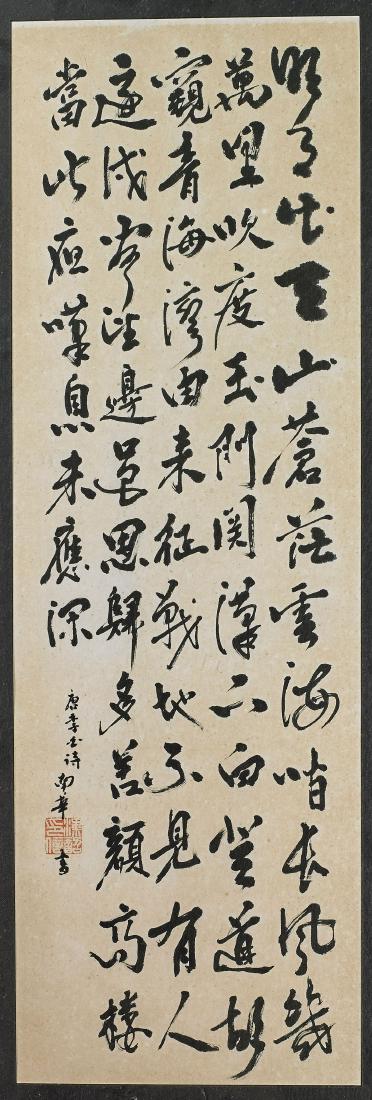 明月出天山蒼茫雲海間長風幾
萬里吹度玉門関漢下白登道胡
窺青海灣由来征戰地不見有人
還戍客望邊邑思歸多苦顏高樓
當此夜嘆息未應深
唐李白詩 書